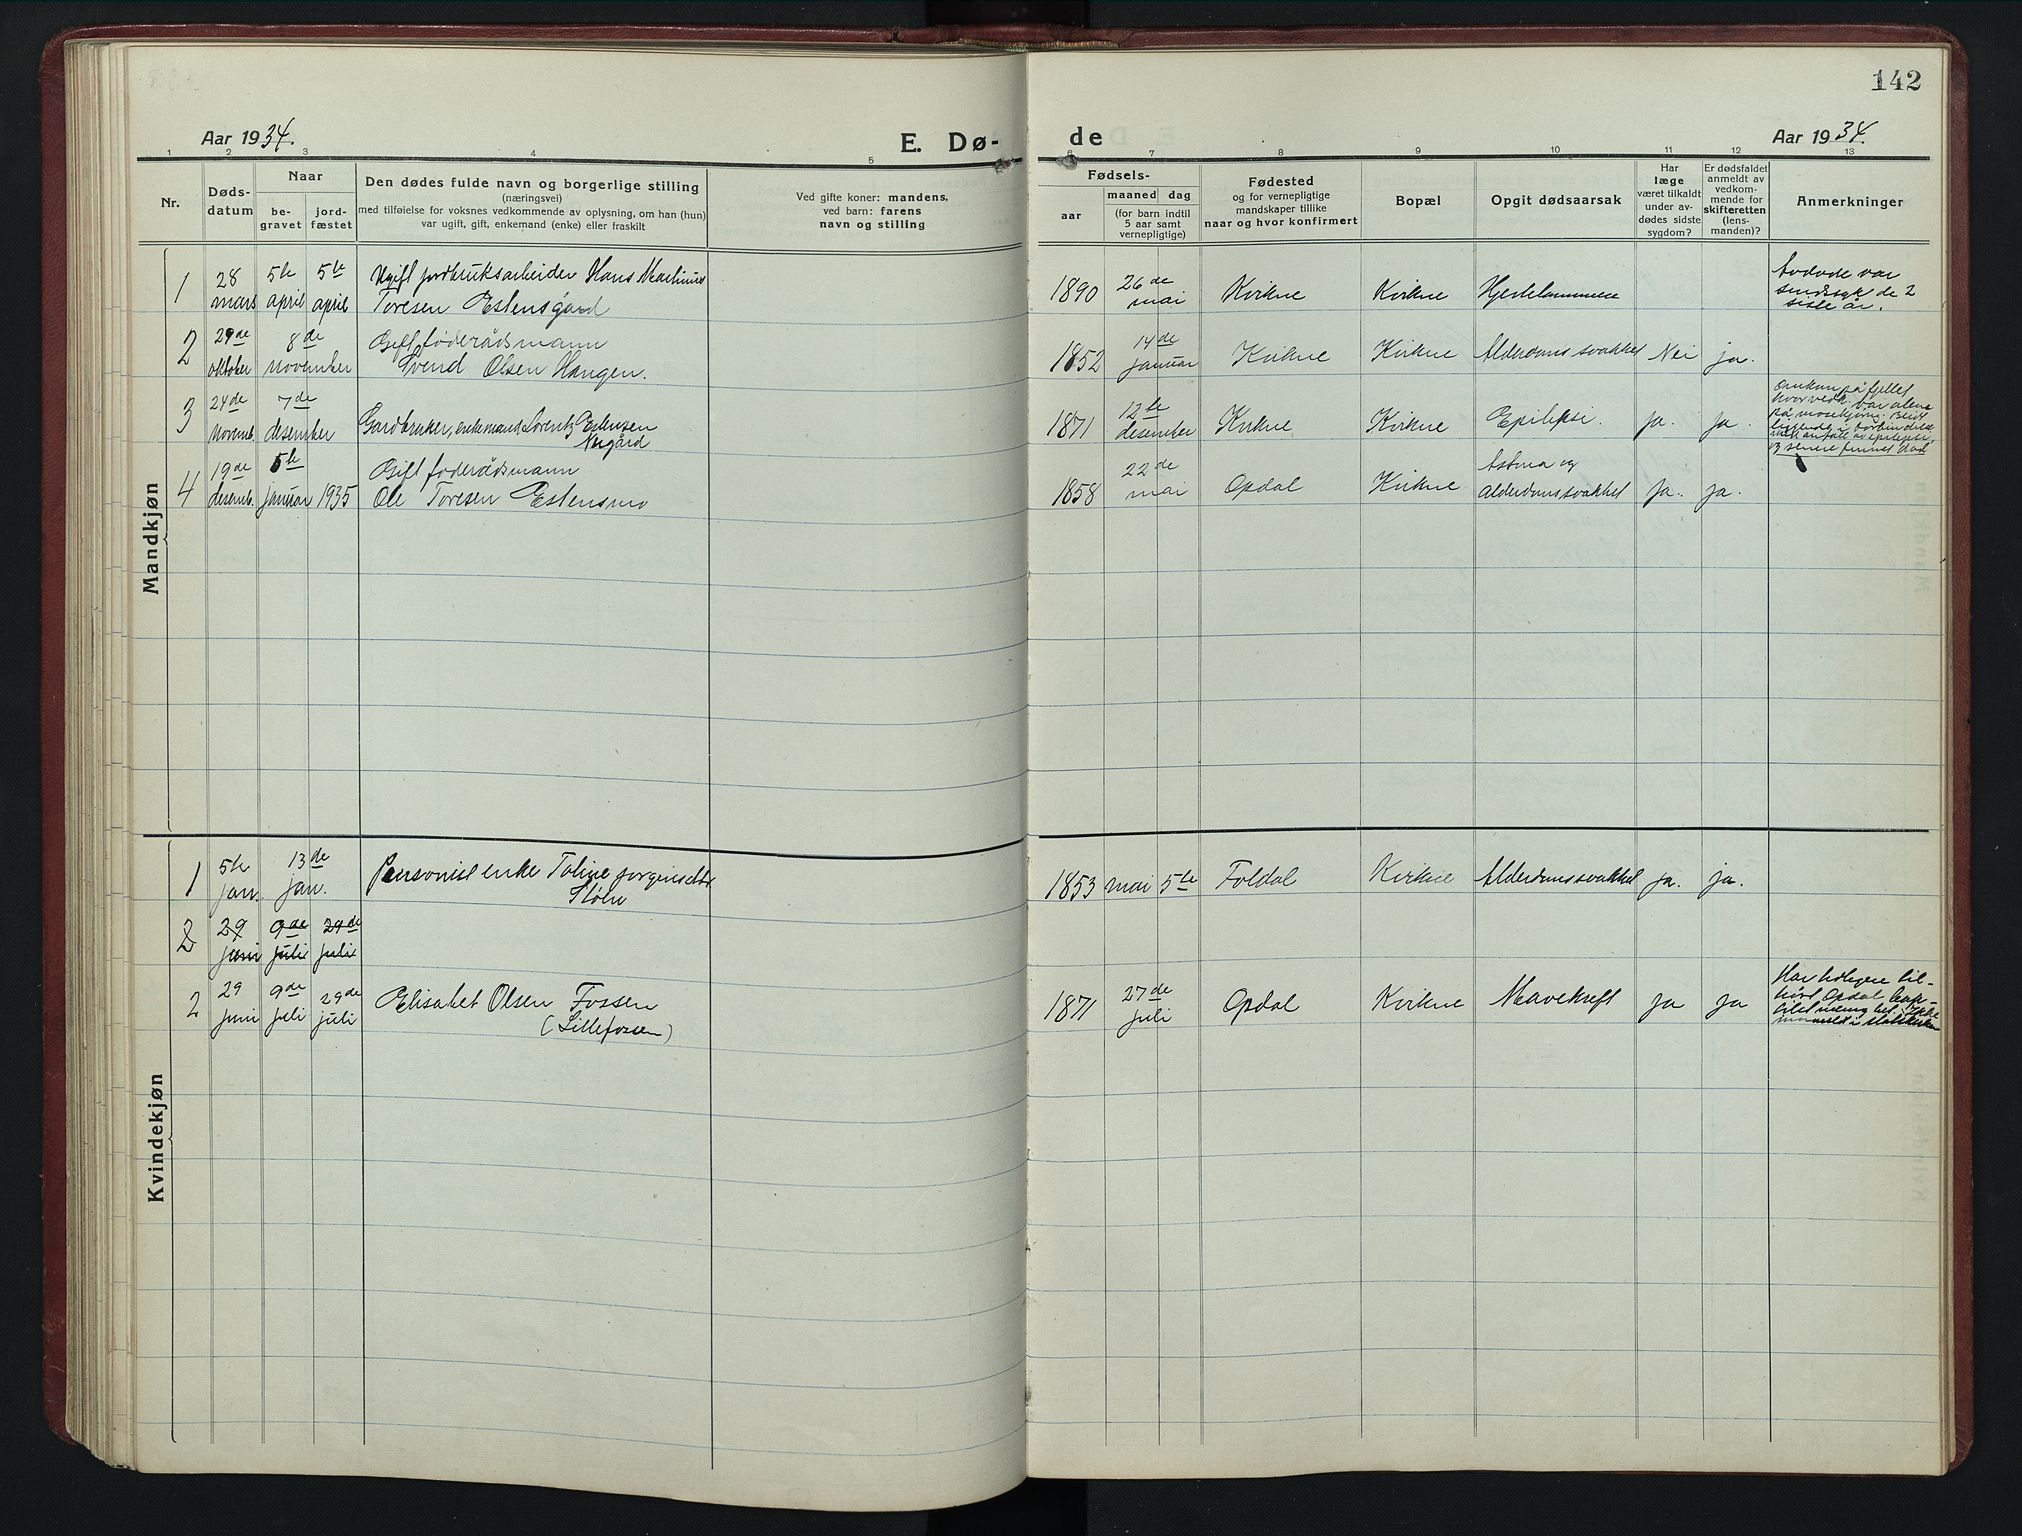 142
Aar 1934.
E. Dø-
de
Aar 1934.
1 2 3 4 5 6 7 8 9 10 11 12 13
Nr.
Døds-
datum
Naar
be-
gravet
jord-
fæstet
Den dødes fulde navn og borgerlige stilling
(næringsvei)
med tilføielse for voksnes vedkommende av oplysning, om han (hun)
var ugift, gift, enkemand (enke) eller fraskilt
Ved gifte koner: mandens,
ved barn: farens
navn og stilling
Fødsels-
aar
maaned dag
(for barn indtil
5 aar samt
vernepligtige)
Fødested
og for vernepligtige
mandskaper tillike
naar og hvor konfirmert
Bopæl
Opgit dødsaarsak
Har
læge
været tilkaldt
under av-
dødes sidste
sygdom?
Er dødsfaldet
anmeldt av
vedkom-
mende for
skifteretten
(lens-
manden)?
Anmerkninger
Mandkjøn
1 28 mars 5te april 5te april Ugift jordbruksarbeider Hans Martinus
Toresen Estensgård
1890 26de mai Kvikne Kvikne Hjertelammelse
Avdøde var
sindssyk de 2
siste år.
2 29de oktober 8de november Gift føderådsmann
Svend Olsen Haugen.
1852 14de januar Kvikne Kvikne Alderdomssvakhet Nei ja.
3 24de novemb. 7de desember Gardbruker, enkemand Lorentz Estensen
Nygård
1871 12te desember Kvikne Kvikne Epilepsi. ja. ja.
Omkom på fjellet,
hvor vedk. var alene
på
liggende i
anfall av epilepsi,
og senere funnet død
4 19de desemb. 5te januar 1935 Gift føderådsmann
Ole Toresen Estensmo
1858 22de mai Opdal Kvikne Astma og
Alderdomssvakhet ja. ja.
Kvindekjøn
1 5te jan. 13de jan. Pensionist enke Taline Jørgensdtr
Stølu
1853 mai 5te Foldal Kvikne Alderdomssvakhet ja. ja.
2 29 juni 9de juli 29de juli
2 29 juni 9de juli 29de juli Elisabet Olsen Fossen
(Lillefossen)
1871 27de juli Opdal Kvikne Mavekreft ja ja
Har tidligere til-
hørt Opdal bap-
tist menighet. Ikke
innmeldt i statskirken